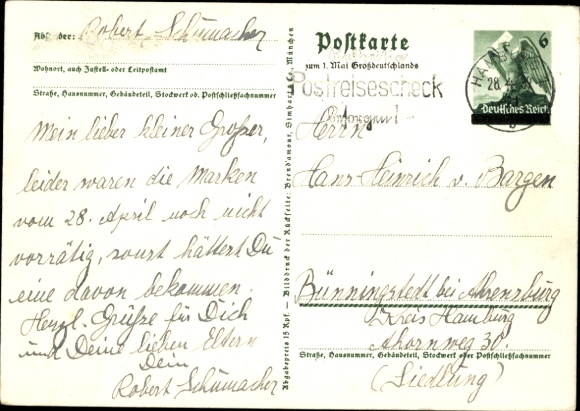 Absender: Robert Schumacher
Wohnort, auch Zustell- oder Leitpostamt
Straße, Hausnummer, Gebäudeteil, Stockwerk od. Postschließfachnummer
Mein lieber kleiner Großer,
leider waren die Marken
vom 28. April noch nicht
vorrätig, sonst hättest Du
eine davon bekommen.
Herzl. Grüße für Dich
und Deine lieben Eltern
Dein
Robert Schumacher
Abgabepreis 15 Rpf. — Bilddruck der Rückseite: Brend'amour, Simhart & Co., München
Postkarte
zum 1. Mai Großdeutschlands
Postreisescheck
6
28. 4.
Deutsches Reich
Herrn
Hans-Heinrich v. Bargen
Bünningstedt bei Ahrensburg
Kreis Hamburg
Ahornweg 30.
Straße, Hausnummer, Gebäudeteil, Stockwerk oder Postschließfachnummer
(Siedlung)